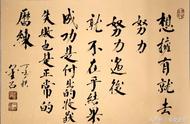 想擁有就去
努力
努力過後
就不在乎結果
成功是付出的收穫
失敗也是正常的
歷練